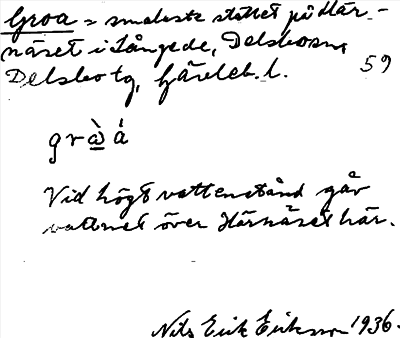 Groa = smalaste stället på Här-
näset i Långede, Delsbo sn,
Delsbo tg, Gävleb. l. 59
gr ὼ á
Vid högt vattenstånd går
vattnet över Härnäset här.
Nils Erik Eriksson 1936.